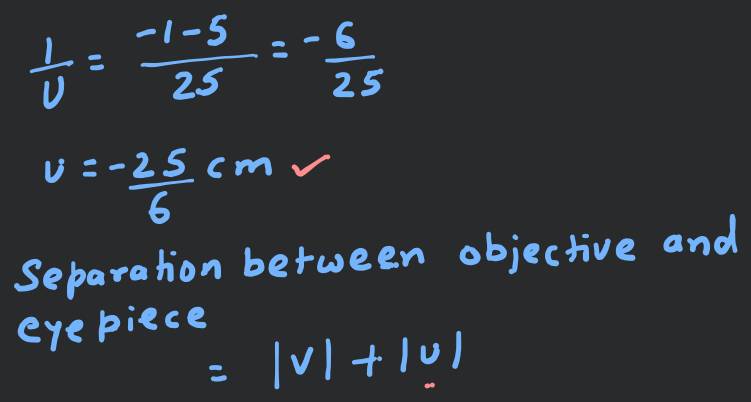 1/u = -1-5/25 = -6/25
u = -25/6 cm ✓
Separation between objective and
eyepiece
= |v| + |u|